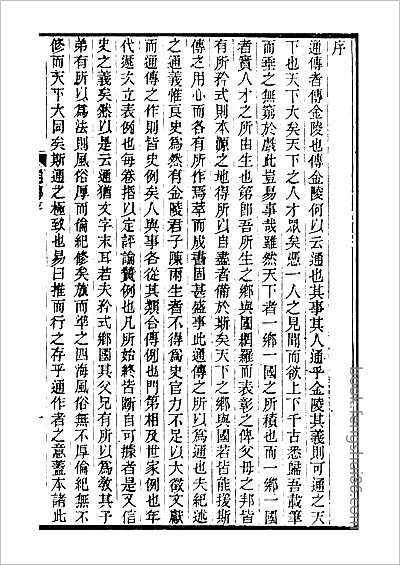 序
通傳者傳金陵也傳金陵何以云通也其事其人通乎金陵其義則可通之天
下也天下大矣天下之人才眾矣憑一人之見聞而欲上下千古悉歸吾載筆
而垂之無窮於戲此豈易事哉雖然天下者一鄉一國之所積也而一鄉一國
者實人才之所由生也第卽吾所生之鄉與國網羅而表彰之俾父母之邦皆
有所矜式則本源之地得所以自盡者備於斯矣天下之鄉與國若皆能援斯
傳之用心而各有所作焉萃而成書固甚盛事此通傳之所以爲通也夫紀述
之通義惟良史爲然有金陵君子陳雨生者不得爲史官力不足以大徵文獻
而通傳之作則皆史例矣人與事各從其類合傳例也門第相及世家例也年
代遞次立表例也每卷揩以定評論贊例也凡所始終皆斷自可據者是又信
史之義矣然以是云通猶文字末耳若夫矜式鄉國其父兄有所以爲教其子
弟有所以爲法則風俗厚而倫紀修矣放而準之四海風俗無不厚倫紀無不
修而天下大同矣斯通之極致也易曰推而行之存乎通作者之意蓋本諸此